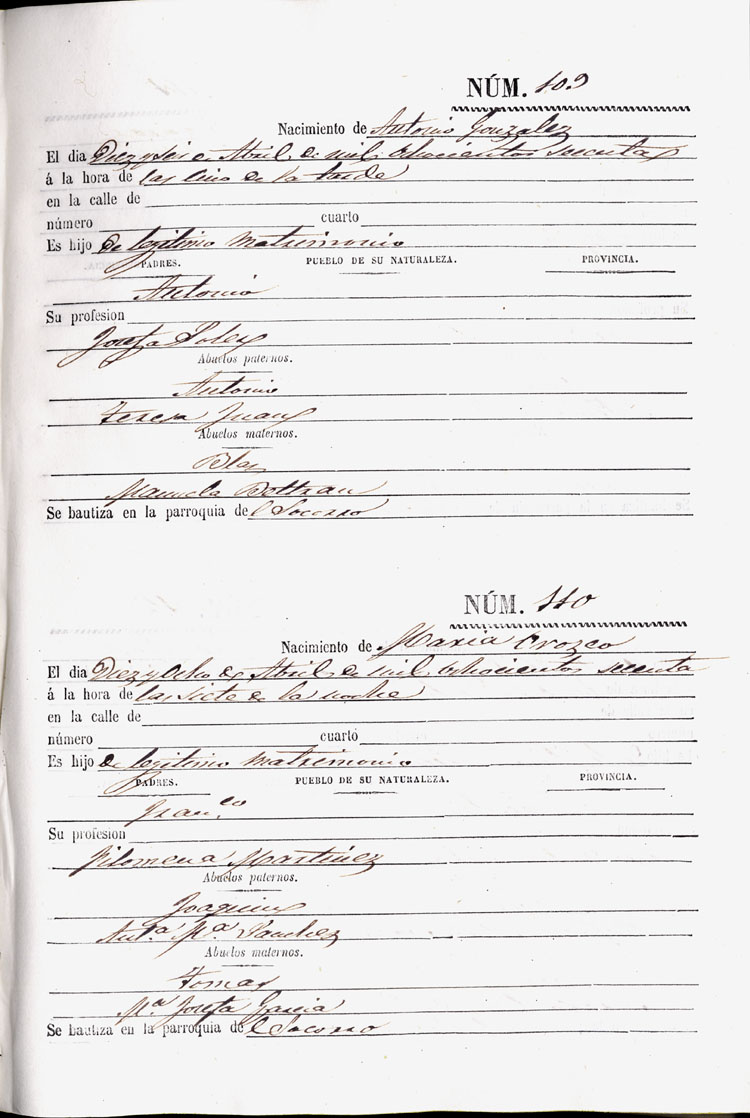 NÚM. 109
Nacimiento de Antonio Gonzalez
El dia Diez y seis de Abril de mil ochocientos secenta
á la hora de las cinco de la tarde
en la calle de
número cuarto
Es hijo de legitimo matrimonio
PADRES. PUEBLO DE SU NATURALEZA. PROVINCIA.
Antonio
Su profesion
Josefa Soler
Abuelos paternos.
Antonio
Teresa Juan
Abuelos maternos.
Blas
Manuela Beltran
Se bautiza en la parroquia del Socorro
NÚM. 110
Nacimiento de Maria Orozco
El dia Diez y Ocho de Abril de mil ochocientos secenta
á la hora de las siete de la noche
en la calle de
número cuarto
Es hijo de legitimo matrimonio
PADRES. PUEBLO DE SU NATURALEZA. PROVINCIA.
Fran.co
Su profesion
Filomena Martinez
Abuelos paternos.
Joaquin
Ant.a M.a Sanchez
Abuelos maternos.
Tomas
M.a Josefa Garcia
Se bautiza en la parroquia del Socorro